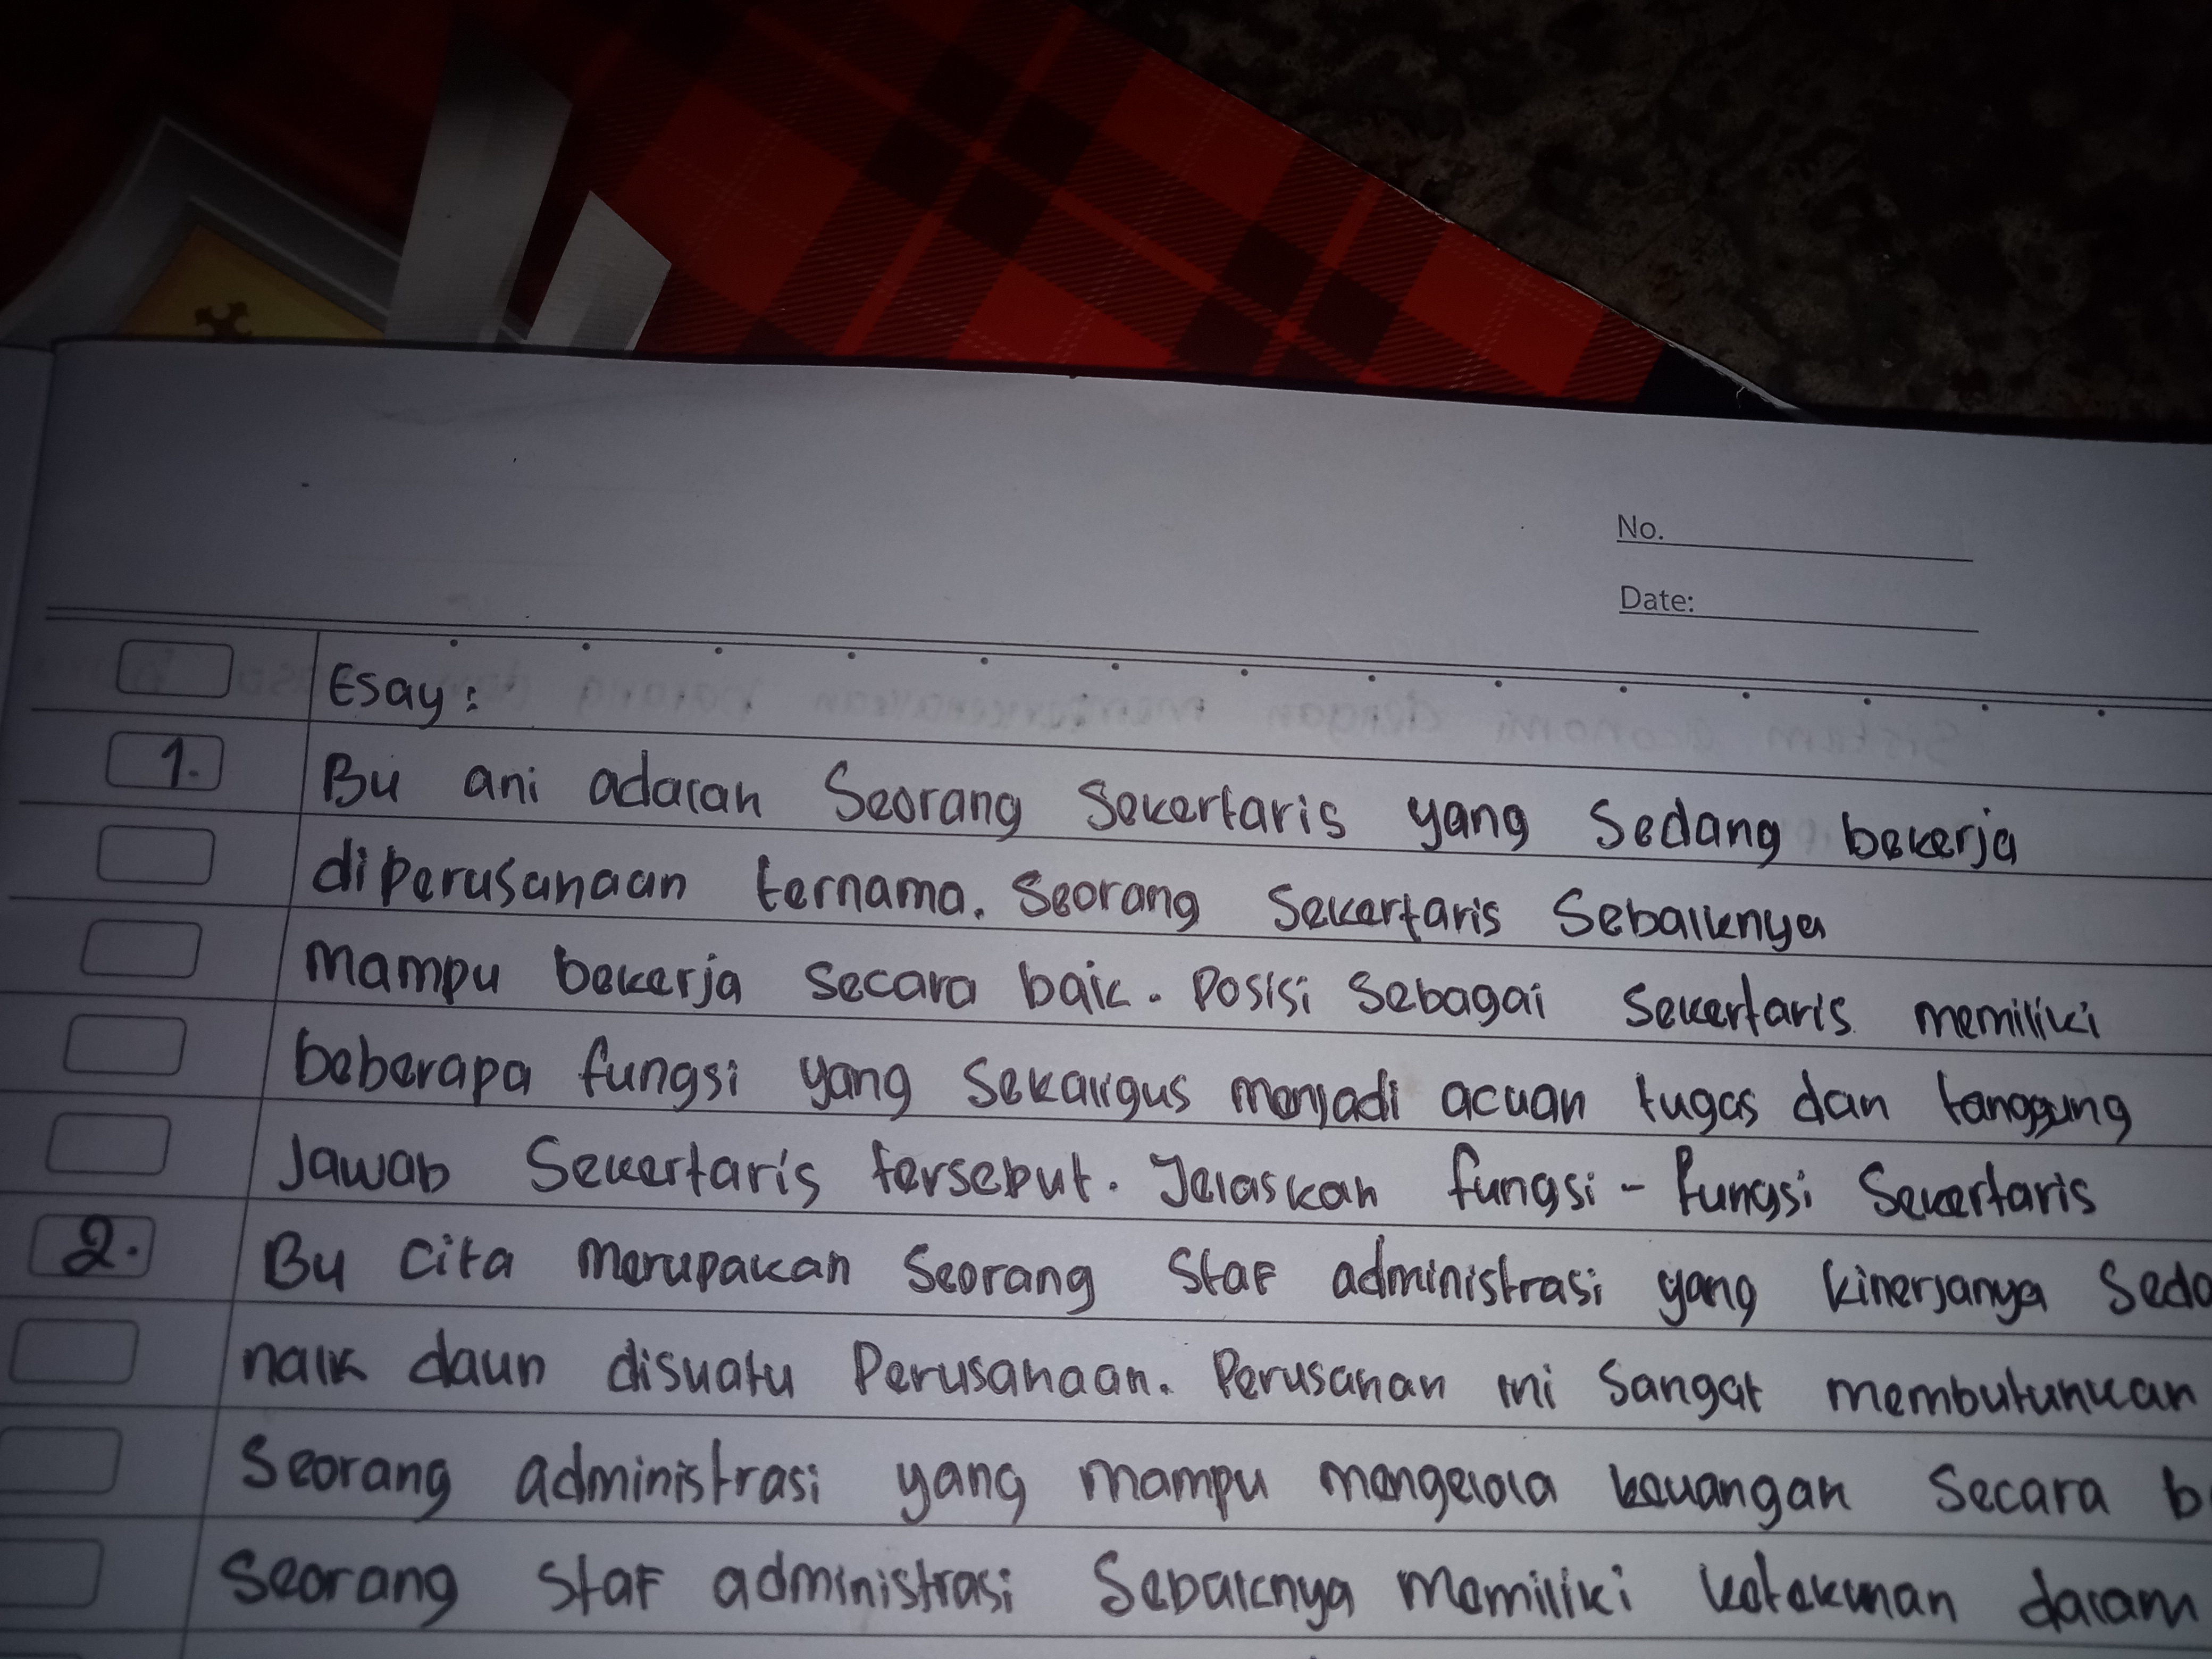 No.
Date:
Esay:
1. Bu ani adalah Seorang Sekertaris yang Sedang bekerja
diperusahaan ternama. Seorang Sekertaris Sebaiknya
mampu bekerja secara baik. Posisi Sebagai Sekertaris memiliki
beberapa fungsi yang Sekaligus menjadi acuan tugas dan tanggung
Jawab Sekertaris tersebut. Jelaskan fungsi - fungsi Sekertaris
2. Bu Cita merupakan Seorang Staf administrasi yang kinerjanya Seda
naik daun disuatu Perusahaan. Perusahan ini Sangat membutuhkan
Seorang administrasi yang mampu mengelola keuangan Secara b
Seorang Staf administrasi Sebaiknya memiliki ketekunan dalam